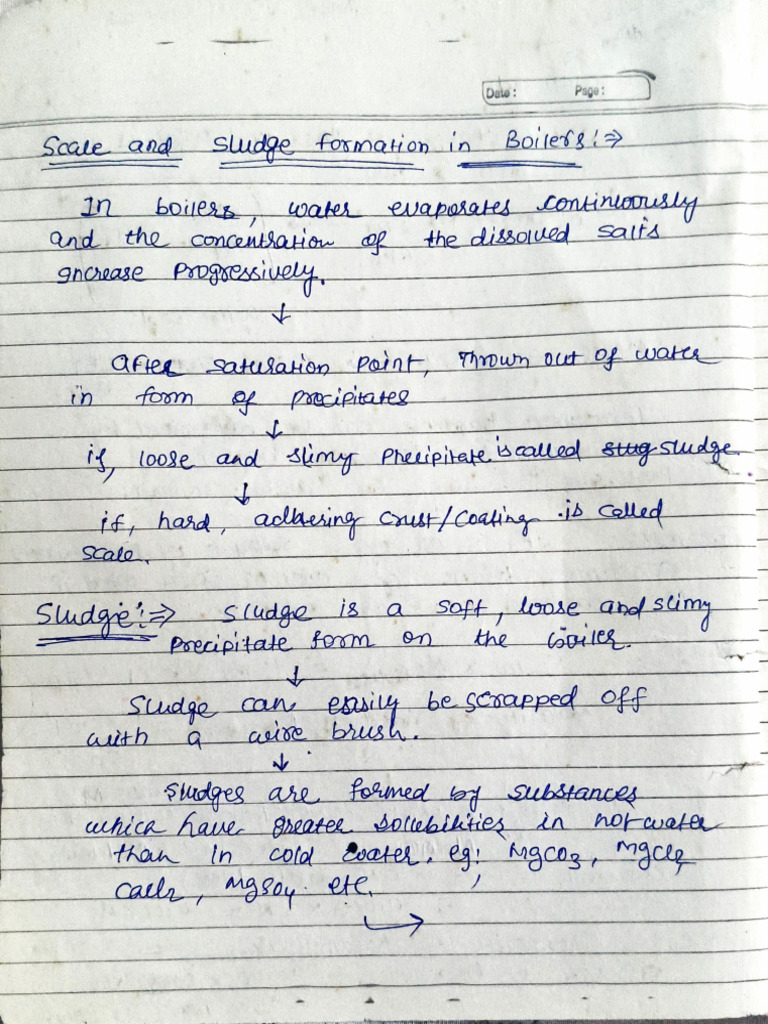 Date: Page:
Scale and Sludge formation in Boilers:⇒
In boilers, water evaporates continuously
and the concentration of the dissolved salts
increase Progressively.
↓
After saturation point, thrown out of water
in form of precipitates
↓
if, loose and slimy Precipitate is called slug sludge.
↓
if, hard, adhering Crust/Coating is called
scale.
Sludge:⇒ Sludge is a soft, loose and slimy
Precipitate form on the boiler.
↓
Sludge can easily be scrapped off
with a wire brush.
↓
Sludges are formed by substances
which have greater solubilities in hot water
than in cold water. eg: MgCO3, MgCl2,
CaCl2, MgSO4 etc.
→